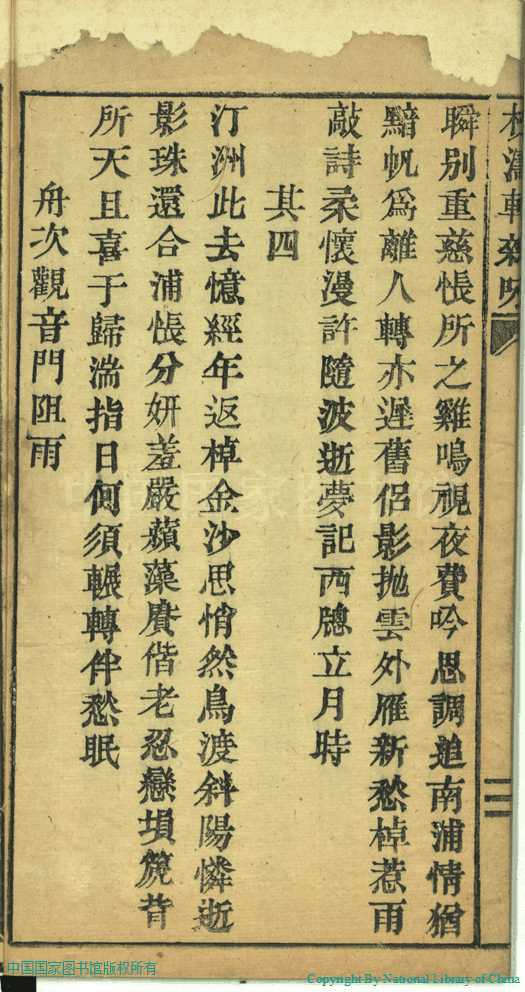 瞬别重慈悵所之雞鳴視夜費吟思調追南浦情猶
黯帆爲離人轉亦遲舊侶影拋雲外雁新愁棹惹雨
敲詩柔懷漫許隨波逝夢記西牕立月時
其四
汀洲此去憶經年返棹金沙思悄然鳥渡斜陽憐逝
影珠還合浦悵分妍羞嚴蘋藻賡偕老忍戀塤箎背
所天且喜于歸湍指日何須輾轉伴愁眠
舟次觀音門阻雨
二
中国国家图书馆版权所有
Copyright By National Library of China